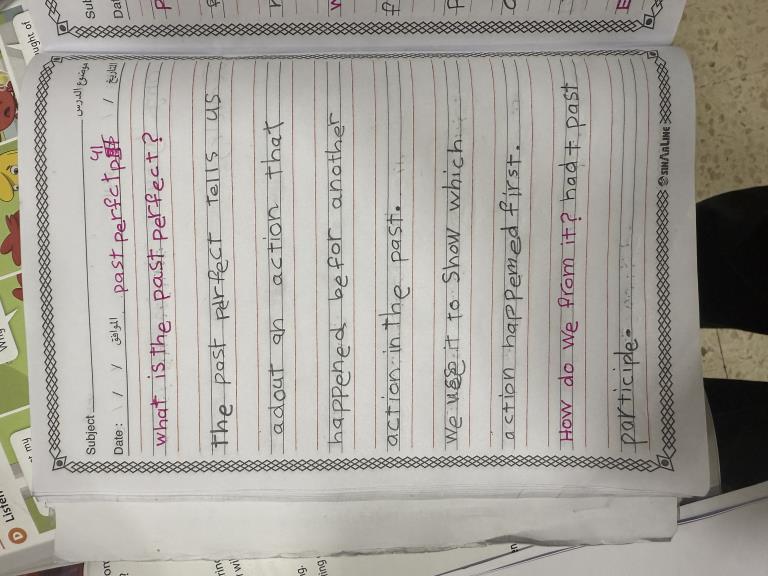 Subject
موضوع الدرس
Date: / / الموافق / / التاريخ
past perfct p41
what is the past perfect?
The past perfect tells us
adout an action that
happened befor another
action in the past.
We ues it to show which
action happemed first.
How do we from it? had + past
participle.
SINARLINE
D Listen
ught of
Why
my